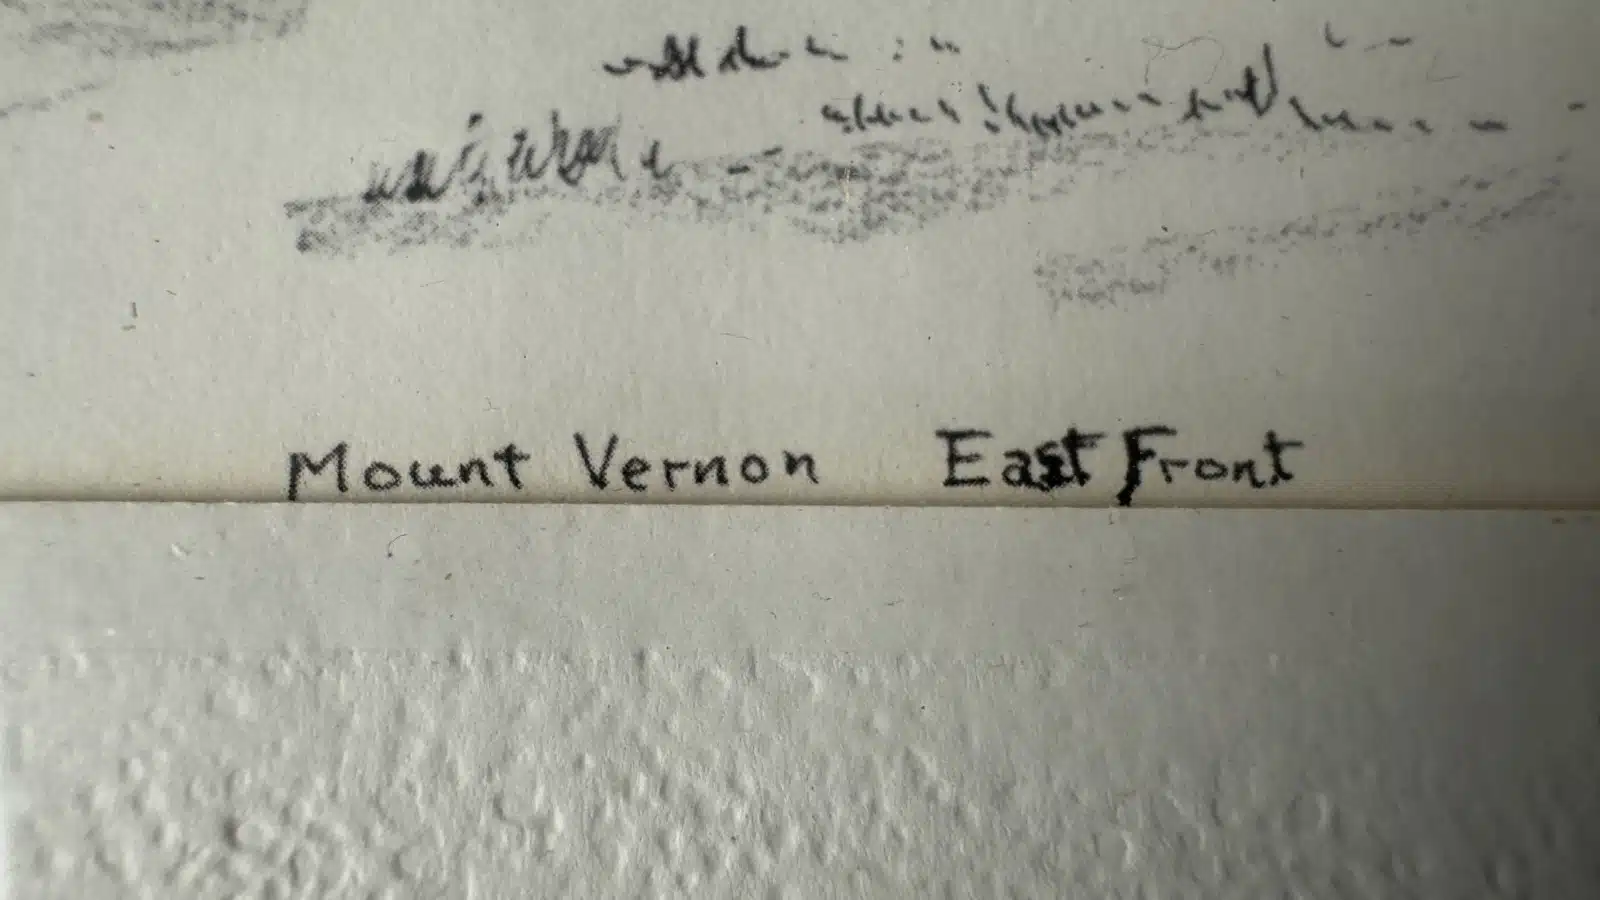 Mount Vernon East Front